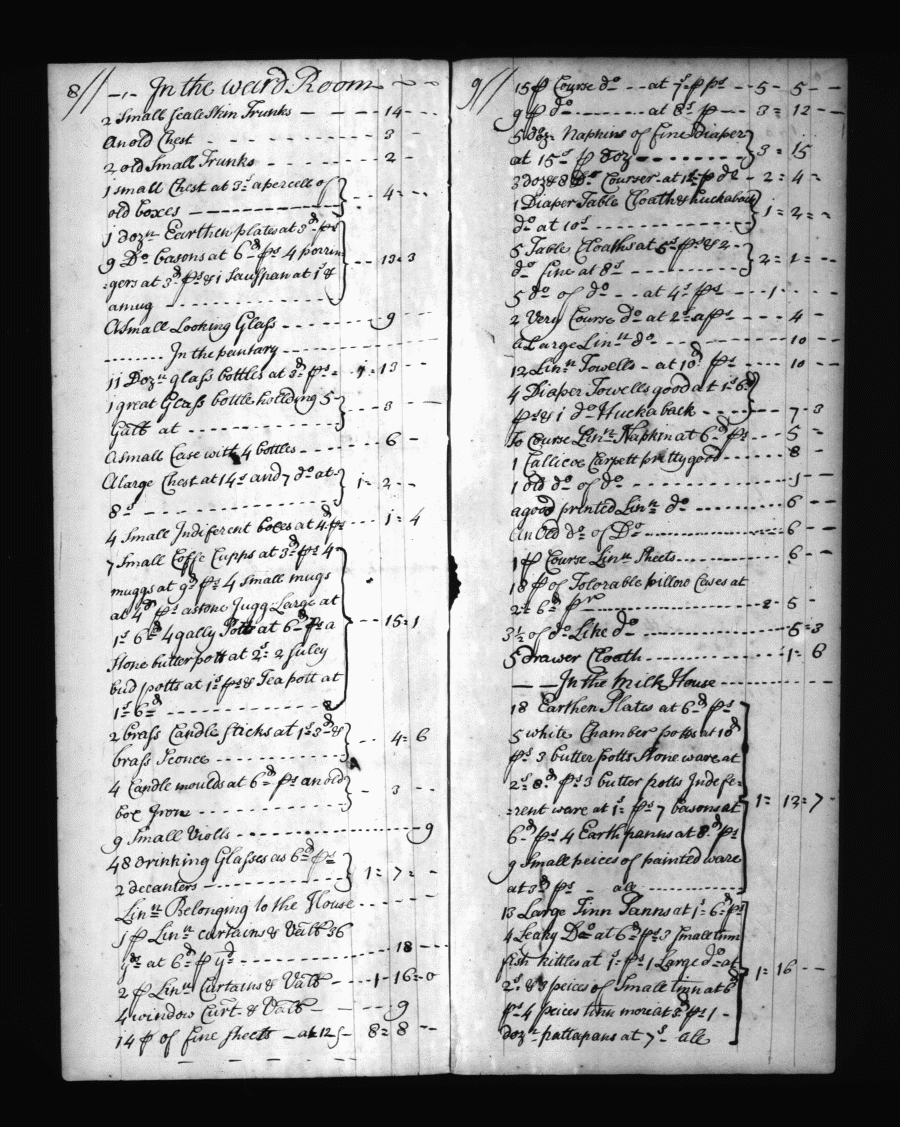 8//
In the ward Room
2 Small Seale Skin Trunks 14
An old Chest 3
2 old Small Trunks 2
1 small Chest at 3s a percell of
old boxes 4=
1 dozn Earthen plates at 3d ps
9 Do basons at 6d ps 4 porrin
=gers at 3d ps & 1 Sauspan at 1s &
a mug 13=3
A Small Looking Glass 9
In the pantary
11 Dozn glass bottles at 3d ps 1=13
1 great Glass bottle holding 5
Galls at 3
A Small Case with 4 bottles 6
A large Chest at 14s and 7 do at
8s 1=2
4 Small Indeferent boxes at 4d ps 1=4
7 Small Coffe Cupps at 3d ps 4
muggs at 9d ps 4 small mugs
at 4d ps a stone Jugg Large at
1s 6d 4 gally Potts at 6d ps a
Stone butter pott at 2s 2
bud potts at 1s ps & Tea pott at
1s=6d 15=1
2 brass Candle sticks at 1s=3d &
brass Sconce 4=6
4 Candle moulds at 6d ps an old
box Iron 3
9 Small Violls 9
48 drinking Glasses at 6d ps
2 decanters 1=7=
Linn Belonging to the House
1 p Linn curtains & Vall 36
yds at 6d p yd 18
2 p Linn Curtains & Vall 1-16=0
4 window Curt & Vall 9
14 p of fine sheets at 12s 8=8
9//
15 p Course do at 7s p ps 5-5
9 p do at 8s p 3=12
5 dozn Napkins of fine Diaper
at 15s p doz 3=15
3 doz & 8 Do Courser at 12s p do 2=4
1 Diaper Table Cloath & huckaback
do at 10s 1=2=
5 Table Cloaths at 5s ps & 2
do fine at 8s 2=1=
5 do of do at 4s ps 1
2 Very Course do at 2s a ps 4
a Large Linn do 10
12 Linn Towells at 10d ps 10
4 Diaper Towells good at 1s 6d
ps & 1 do Huckaback 7-3
10 Course Linn Napkin at 6d ps 5
1 Callicoe Carpett pretty good 8
1 old do of do 1
a good printed Linn do 6
An old do of Do 6
1 p Course Linn Sheets 6
18 p of Tolorable pillow Cases at
2s 6d pr 2-5
3½ of do Like do 5=3
5 drawer Cloath 1=6
In the Milk House
18 Earthen Plates at 6d ps
5 white Chamber potts at 10d
ps 3 butter potts Stone ware at
2s=8d ps 3 butter potts Indefe=
=rent ware at 1s ps 7 basons at
6d ps 4 Earth panns at 8d ps
9 Small peices of painted ware
at 3d ps all 1=13=7
13 Large Tinn Panns at 1s=6d ps
4 Leaky Do at 6d ps 3 Small tinn
fish kittles at 1s ps 1 Large do at
2s & 8 peices of Small tinn at 6d
ps 4 peices tinn more at 8d ps 1
dozn pattapans at 7s all 1=16